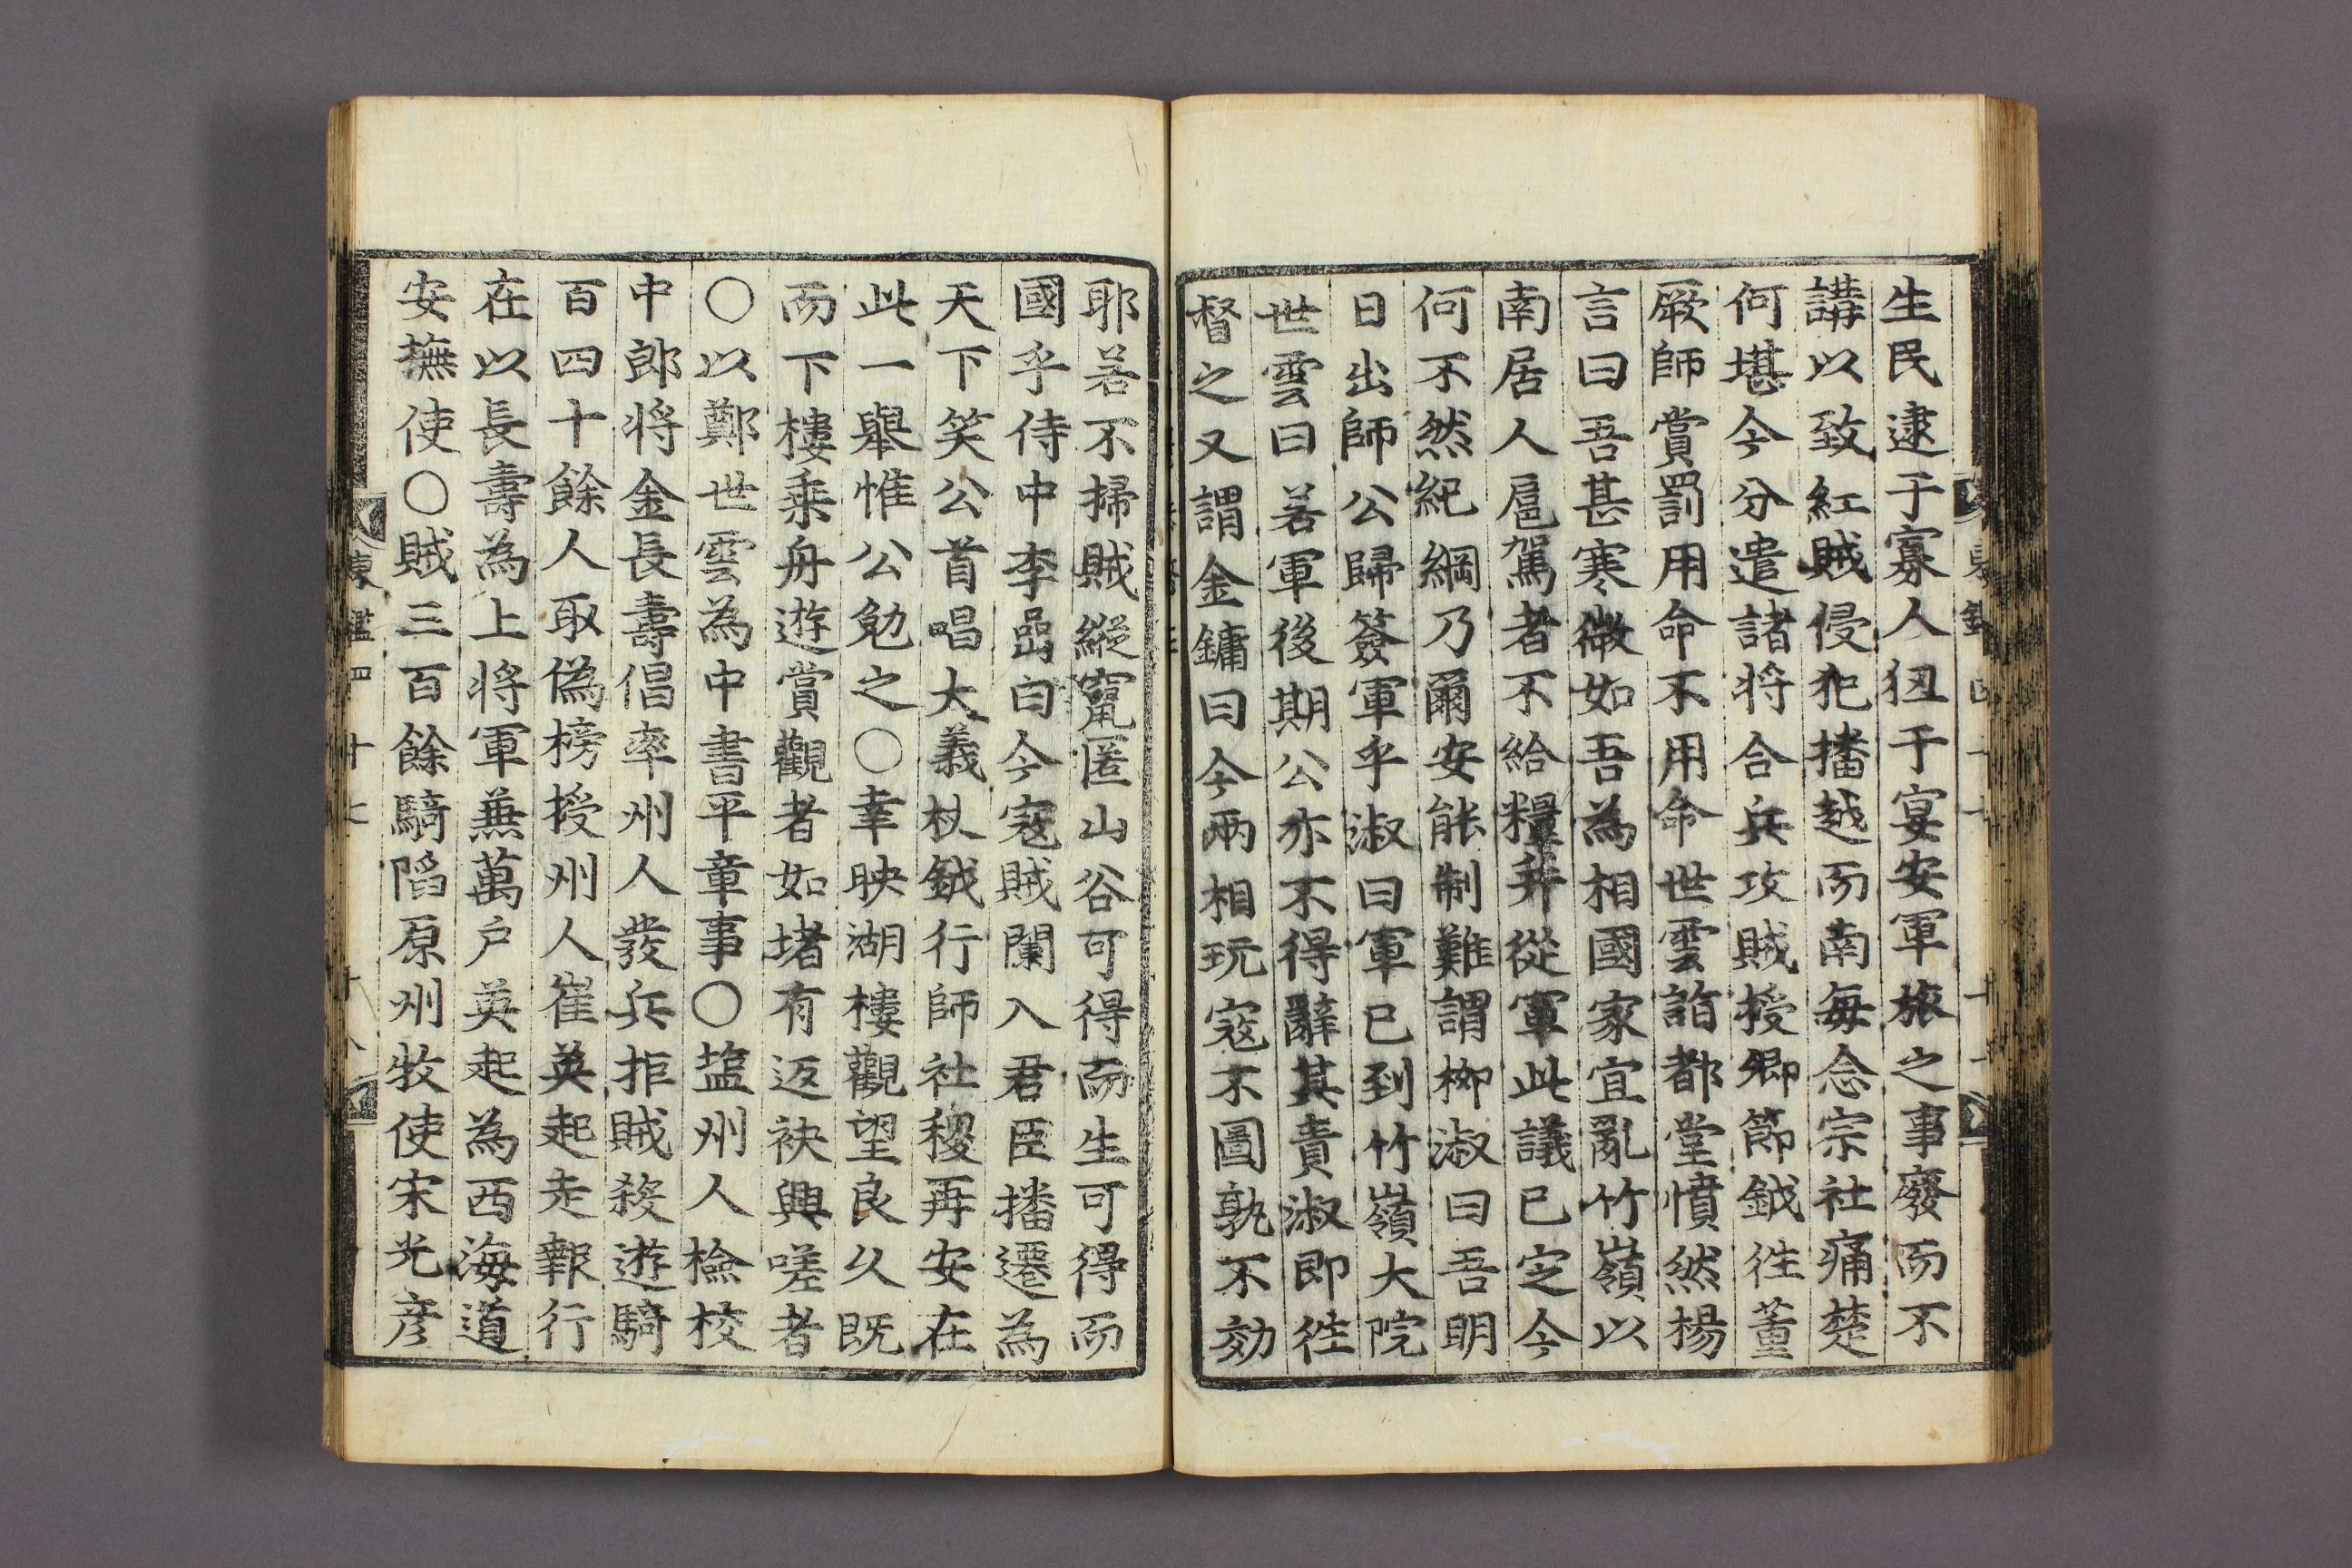 生民逮于寡人狃于宴安軍旅之事廢而不
講以致紅賊侵犯播越而南每念宗社痛楚
何堪今分遣諸将合兵攻賊授卿節鉞徃董
厥師賞罰用命不用命世雲詣都堂憤然楊
言曰吾甚寒微如吾為相國家宜亂竹嶺以
南居人扈駕者不給糧并從軍此議已定今
何不然紀綱乃爾安能制難謂柳淑曰吾明
日出師公歸簽軍乎淑曰軍已到竹嶺大院
世雲曰若軍後期公亦不得辭其責淑即徃
督之又謂金鏞曰今兩相玩寇不圖孰不効
耶若不掃賊縱竄匿山谷可得而生可得而
國乎侍中李嵒曰今寇賊闌入君臣播遷為
天下笑公首唱大義杖鉞行師社稷再安在
此一舉惟公勉之〇幸映湖樓觀望良久既
而下樓乗舟遊賞觀者如堵有返袂興嗟者
〇以鄭世雲為中書平章事〇塩州人檢校
中郎将金長壽倡率州人發兵拒賊殺遊騎
百四十餘人取偽榜授州人崔英起走報行
在以長壽為上将軍兼萬戶英起為西海道
安撫使〇賊三百餘騎陷原州牧使宋光彦
東鑑四十七 十八